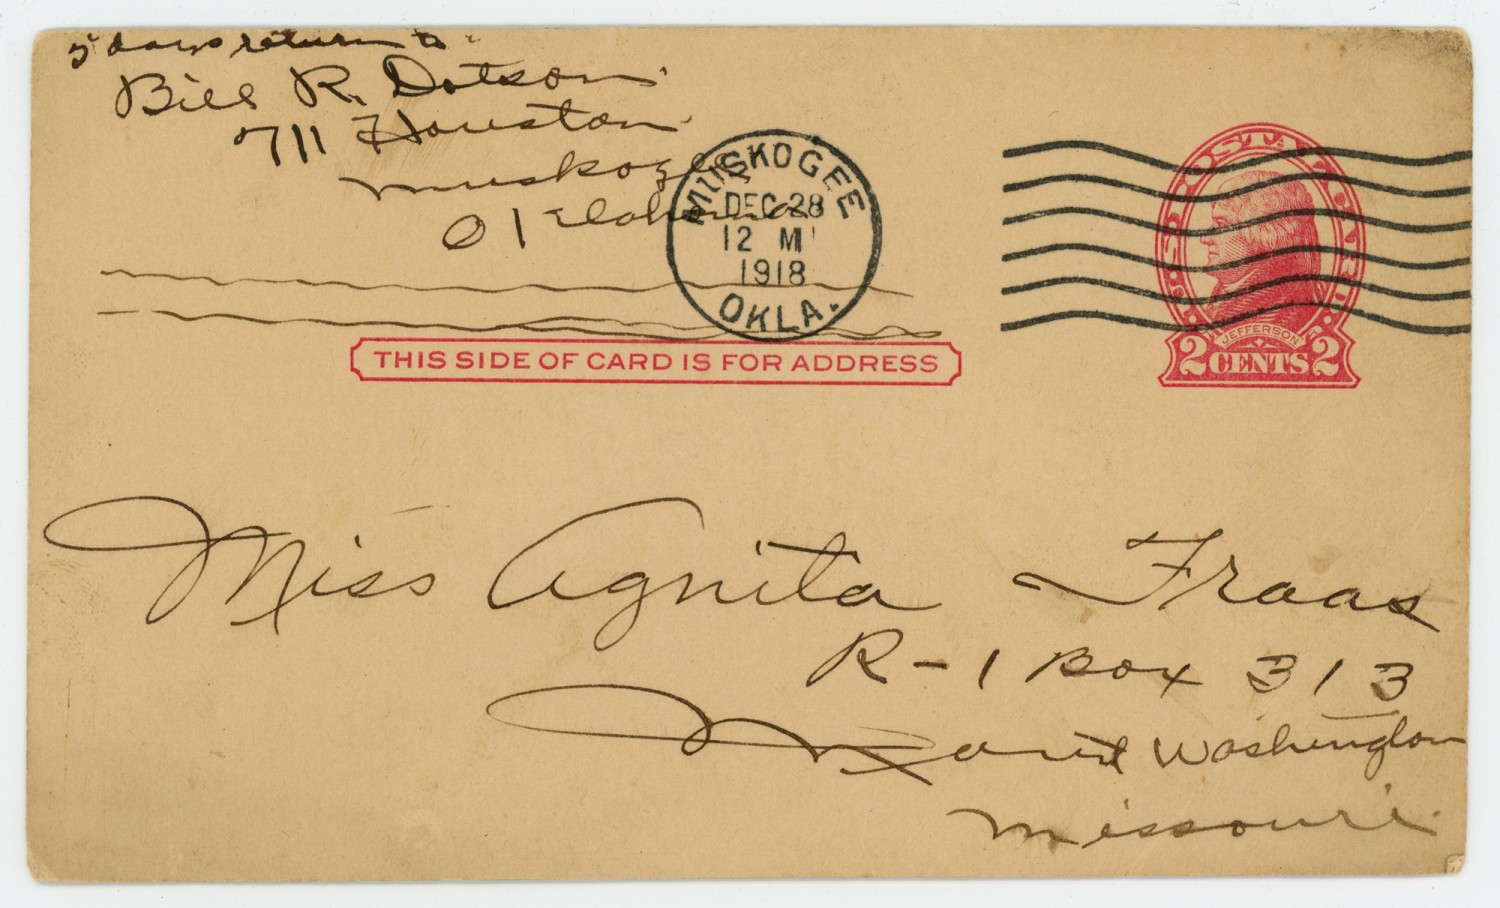 5 days return to
Bill R. Dotson
711 Houston
Muskogee
Oklahoma
MUSKOGEE
DEC 28
12 M
1918
OKLA.
U.S. POSTAL CARD
JEFFERSON
2 CENTS 2
THIS SIDE OF CARD IS FOR ADDRESS
Miss Agnita Fraas
R-1 Box 313
Mount Washington
Missouri